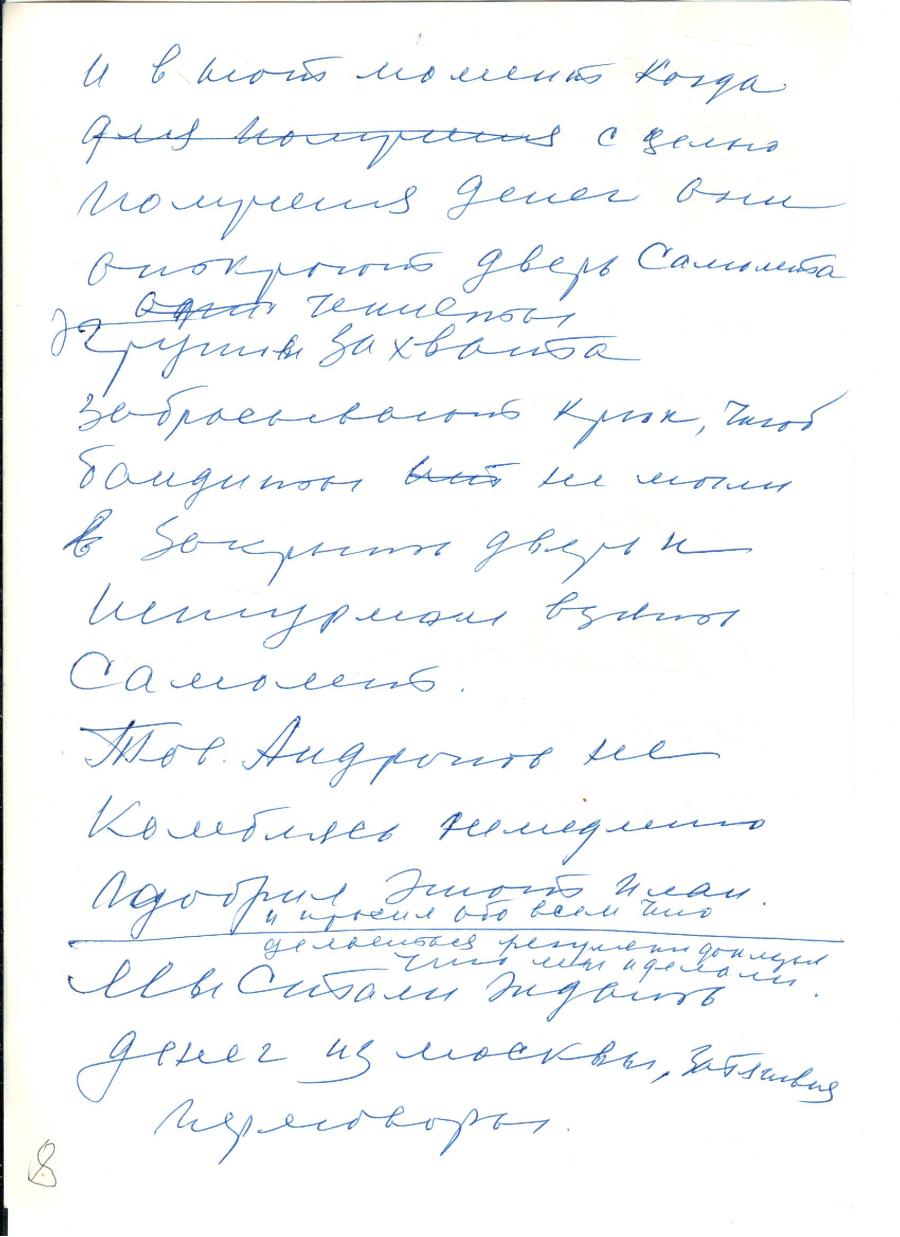 и в этот момент когда
для получения с целью
получения денег они
откроют дверь самолета
члены
группы захвата
забрасывают крюк, чтоб
бандиты не могли
закрыть дверь и
штурмом взять
самолет.
Тов. Андропов не
колеблясь немедленно
одобрил этот план.
и просил обо всем что
делается регулярно докладыв
что мы и делали.
Мы стали ждать
денег из москвы, затягивая
переговоры.
8